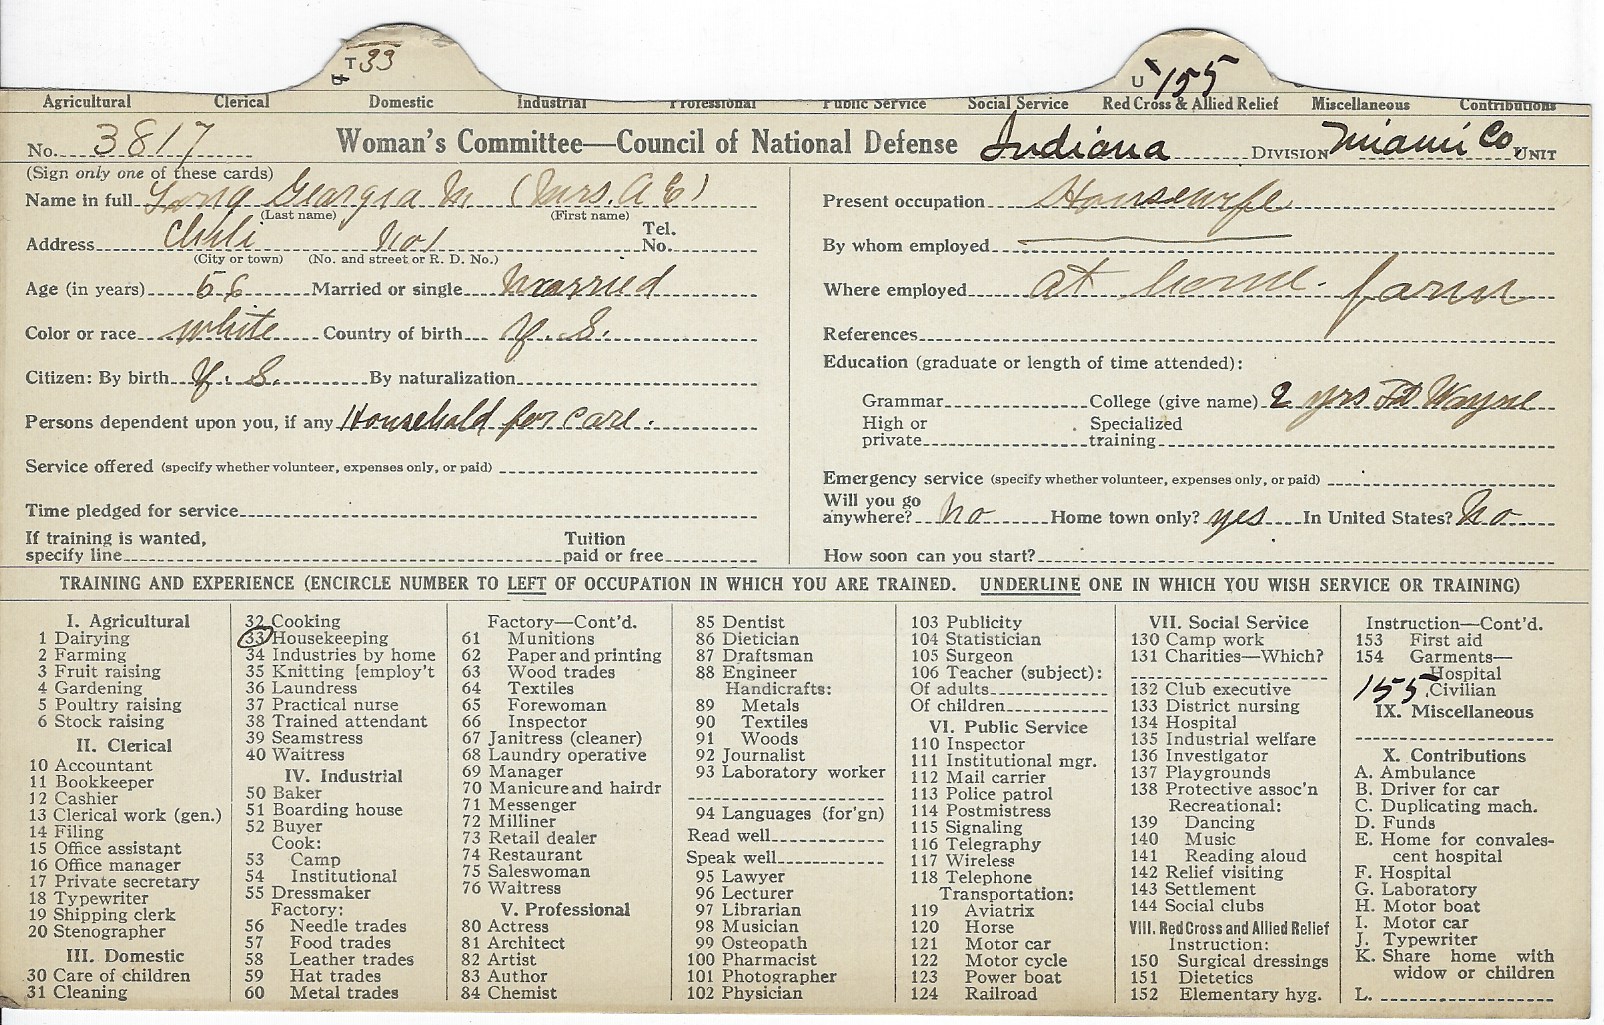 T 33
U 155
Agricultural Clerical Domestic Industrial Professional Public Service Social Service Red Cross & Allied Relief Miscellaneous Contributions
No. 3817 Woman's Committee—Council of National Defense Indiana DIVISION Miami Co. UNIT
(Sign only one of these cards)
Name in full Long Georgia M (Mrs. A E)
(Last name) (First name)
Address Chili No 1 Tel. No.
(City or town) (No. and street or R. D. No.)
Age (in years) 56 Married or single Married
Color or race white Country of birth U. S.
Citizen: By birth U. S. By naturalization
Persons dependent upon you, if any Household for care.
Service offered (specify whether volunteer, expenses only, or paid)
Time pledged for service
If training is wanted, specify line Tuition paid or free
Present occupation Housewife
By whom employed
Where employed at home. farm
References
Education (graduate or length of time attended):
Grammar College (give name) 2 yrs Ft Wayne
High or private Specialized training
Emergency service (specify whether volunteer, expenses only, or paid)
Will you go anywhere? No Home town only? yes In United States? No
How soon can you start?
TRAINING AND EXPERIENCE (ENCIRCLE NUMBER TO LEFT OF OCCUPATION IN WHICH YOU ARE TRAINED. UNDERLINE ONE IN WHICH YOU WISH SERVICE OR TRAINING)
I. Agricultural
1 Dairying
2 Farming
3 Fruit raising
4 Gardening
5 Poultry raising
6 Stock raising
II. Clerical
10 Accountant
11 Bookkeeper
12 Cashier
13 Clerical work (gen.)
14 Filing
15 Office assistant
16 Office manager
17 Private secretary
18 Typewriter
19 Shipping clerk
20 Stenographer
III. Domestic
30 Care of children
31 Cleaning
32 Cooking
33 Housekeeping
34 Industries by home
35 Knitting [employ't
36 Laundress
37 Practical nurse
38 Trained attendant
39 Seamstress
40 Waitress
IV. Industrial
50 Baker
51 Boarding house
52 Buyer
Cook:
53 Camp
54 Institutional
55 Dressmaker
Factory:
56 Needle trades
57 Food trades
58 Leather trades
59 Hat trades
60 Metal trades
Factory—Cont'd.
61 Munitions
62 Paper and printing
63 Wood trades
64 Textiles
65 Forewoman
66 Inspector
67 Janitress (cleaner)
68 Laundry operative
69 Manager
70 Manicure and hairdr
71 Messenger
72 Milliner
73 Retail dealer
74 Restaurant
75 Saleswoman
76 Waitress
V. Professional
80 Actress
81 Architect
82 Artist
83 Author
84 Chemist
85 Dentist
86 Dietician
87 Draftsman
88 Engineer
Handicrafts:
89 Metals
90 Textiles
91 Woods
92 Journalist
93 Laboratory worker
94 Languages (for'gn)
Read well
Speak well
95 Lawyer
96 Lecturer
97 Librarian
98 Musician
99 Osteopath
100 Pharmacist
101 Photographer
102 Physician
103 Publicity
104 Statistician
105 Surgeon
106 Teacher (subject):
Of adults
Of children
VI. Public Service
110 Inspector
111 Institutional mgr.
112 Mail carrier
113 Police patrol
114 Postmistress
115 Signaling
116 Telegraphy
117 Wireless
118 Telephone
Transportation:
119 Aviatrix
120 Horse
121 Motor car
122 Motor cycle
123 Power boat
124 Railroad
VII. Social Service
130 Camp work
131 Charities—Which?
132 Club executive
133 District nursing
134 Hospital
135 Industrial welfare
136 Investigator
137 Playgrounds
138 Protective assoc'n
Recreational:
139 Dancing
140 Music
141 Reading aloud
142 Relief visiting
143 Settlement
144 Social clubs
VIII. Red Cross and Allied Relief
Instruction:
150 Surgical dressings
151 Dietetics
152 Elementary hyg.
Instruction—Cont'd.
153 First aid
154 Garments—
Hospital
155 Civilian
IX. Miscellaneous
X. Contributions
A. Ambulance
B. Driver for car
C. Duplicating mach.
D. Funds
E. Home for convales-
cent hospital
F. Hospital
G. Laboratory
H. Motor boat
I. Motor car
J. Typewriter
K. Share home with
widow or children
L.